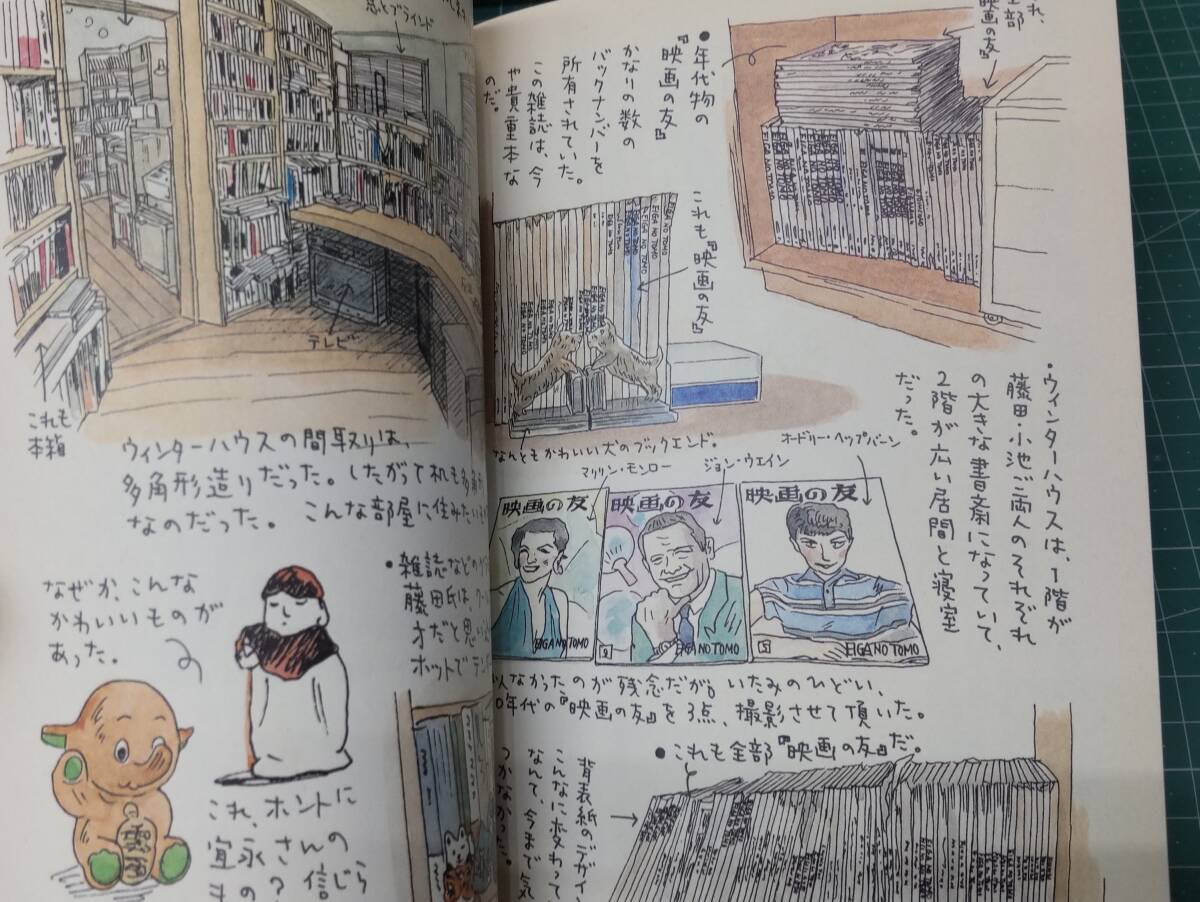 窓とブラインド
テレビ
これも
本箱
ウィンターハウスの間取りは、
多角形造りだった。したがって机も多角
なのだった。こんな部屋に住みたい
なぜか、こんな
かわいいものが
あった。
これ、ホントに
宜永さんの
信じら
雑誌などの
藤田氏は、
才だと思い
ホットで
れ、
全部
映画の友』
●年代物の
『映画の友』
かなりの数の
バックナンバーを
所有されていた。
この雑誌は、今
や貴重本な
のだ。
これも『映画の友』
なんともかわいい犬のブックエンド。
マリリン・モンロー
ジョン・ウエイン
オードリー・ヘップバーン
映画の友
EIGA NO TOMO
映画の友
EIGA NO TOMO
映画の友
EIGA NO TOMO
・ウィンターハウスは、1階が
藤田・小池ご両人のそれぞれ
の大きな書斎になっていて、
2階が広い居間と寝室
だった。
なかったのが残念だが。いたみのひどい、
年代の『映画の友』を3点、撮影させて頂いた。
●これも全部『映画の友』だ。
背表紙のデザイン
こんなに変わって
なんて、今まで気
つかなかった。